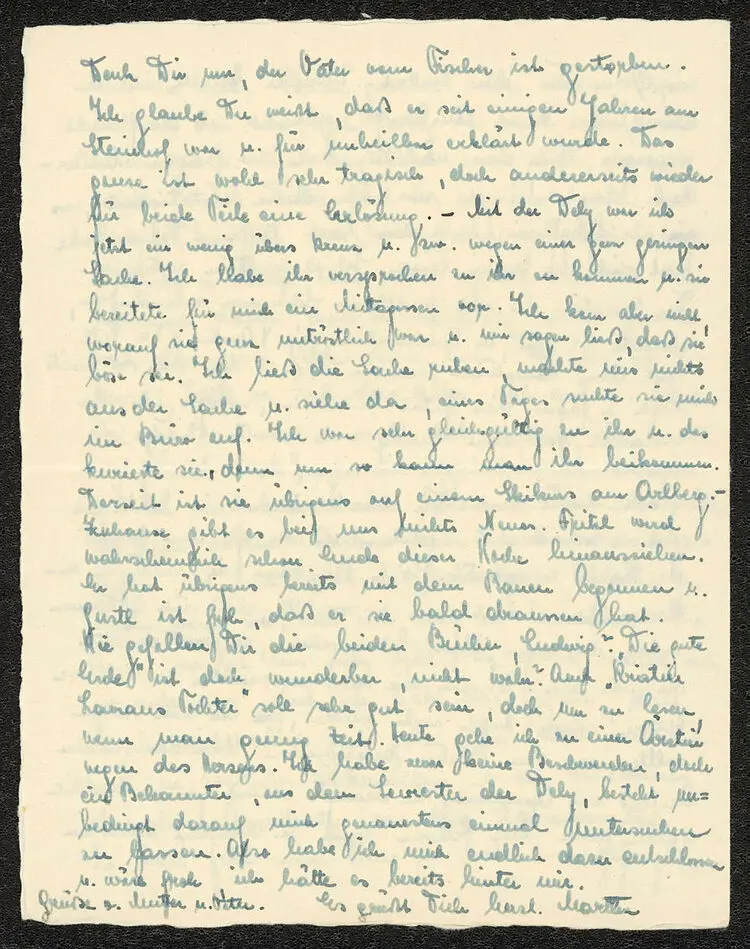 Denk Dir nur, der Vater vom Fischer ist gestorben.
Ich glaube Du weißt, daß er seit einigen Jahren am
Steinhof war u. für unheilbar erklärt wurde. Das
ganze ist wohl sehr tragisch, doch andererseits wieder
für beide Teile eine Erlösung. – Mit der Dely war ich
jetzt ein wenig übers Kreuz u. zw. wegen einer ganz geringen
Sache. Ich habe ihr versprochen zu ihr zu kommen u. sie
bereitete für mich ein Mittagessen vor. Ich kam aber nicht,
worauf sie ganz untröstlich war u. mir sagen ließ, daß sie
böse sei. Ich ließ die Sache ruhen, machte mir nichts
aus der Sache u. siehe da, eines Tages suchte sie mich
im Büro auf. Ich war sehr gleichgültig zu ihr u. das
kurierte sie, denn nur so kann man ihr beikommen.
Derzeit ist sie übrigens auf einem Skikurs am Arlberg. –
Zuhause gibt es bei uns nichts Neues. Fritzl wird
wahrscheinlich schon Ende dieser Woche hinausziehen.
Er hat übrigens bereits mit dem Bauen begonnen u.
Gustl ist froh, daß er sie bald draussen hat.
Wie gefallen Dir die beiden Bücher, Ludwig? „Die gute
Erde" ist doch wunderbar, nicht wahr? Auch „Kristin
Lavrans Tochter" soll sehr gut sein, doch nur zu lesen,
wenn man genug Zeit. Heute gehe ich zu einer Ärztin
wegen des Herzens. Ich habe zwar keine Beschwerden, doch
ein Bekannter, aus dem Semester der Dely, besteht un=
bedingt darauf mich genauestens einmal untersuchen
zu lassen. Also habe ich mich endlich dazu entschlossen
u. wäre froh ich hätte es bereits hinter mir.
Grüße a. Mutter u. Vater. Es grüßt Dich herzl.